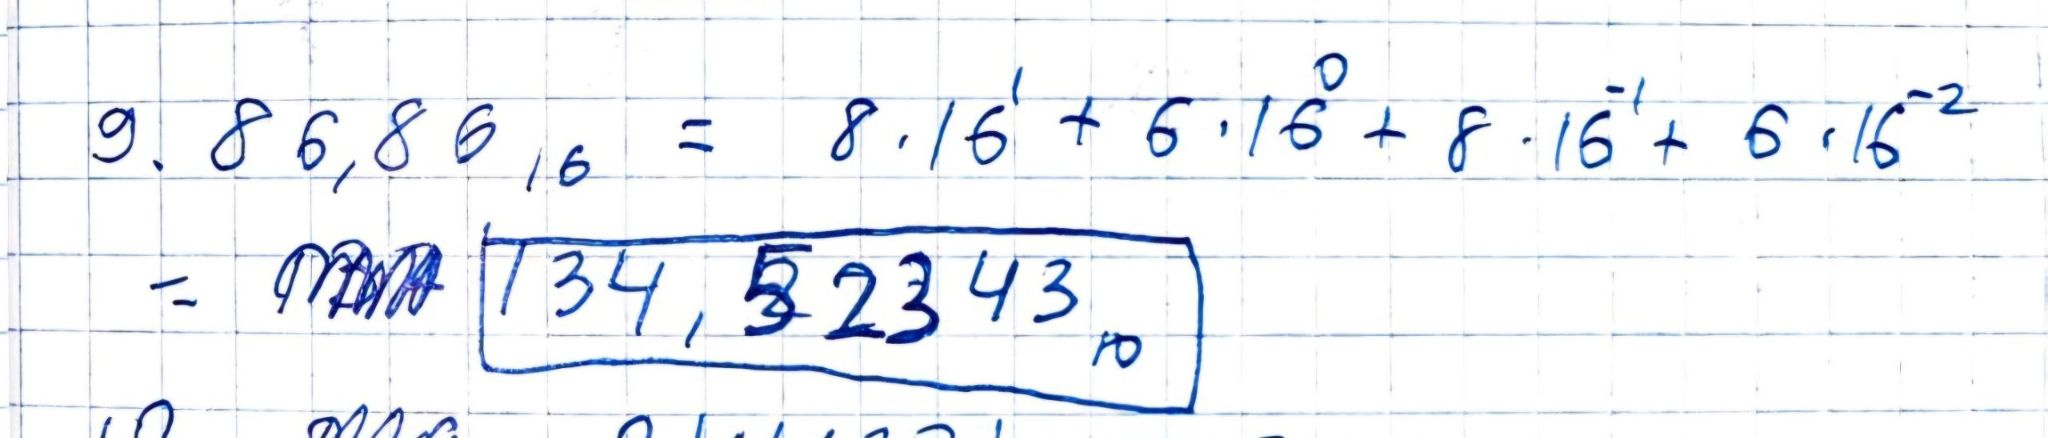 9. 86,86₁₆ = 8·16¹ + 6·16⁰ + 8·16⁻¹ + 6·16⁻²
= 134,52343₁₀